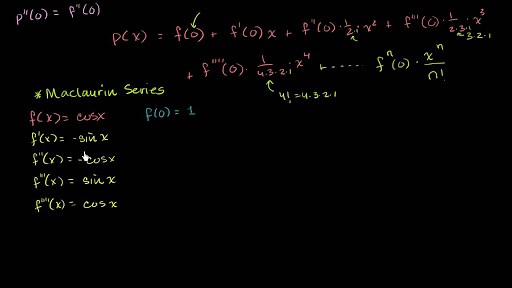 p''(0) = f''(0)
p(x) = f(0) + f'(0) x + f''(0) · 1/2·1 x² + f'''(0) · 1/2·3·1 · x³
3·2·1
+ f''''(0) · 1/4·3·2·1 x⁴ + ------ fⁿ(0) · xⁿ/n!
4! = 4·3·2·1
* Maclaurin Series
f(x) = cosx f(0) = 1
f'(x) = -sin x
f''(x) = -cosx
f'''(x) = sin x
f''''(x) = cos x